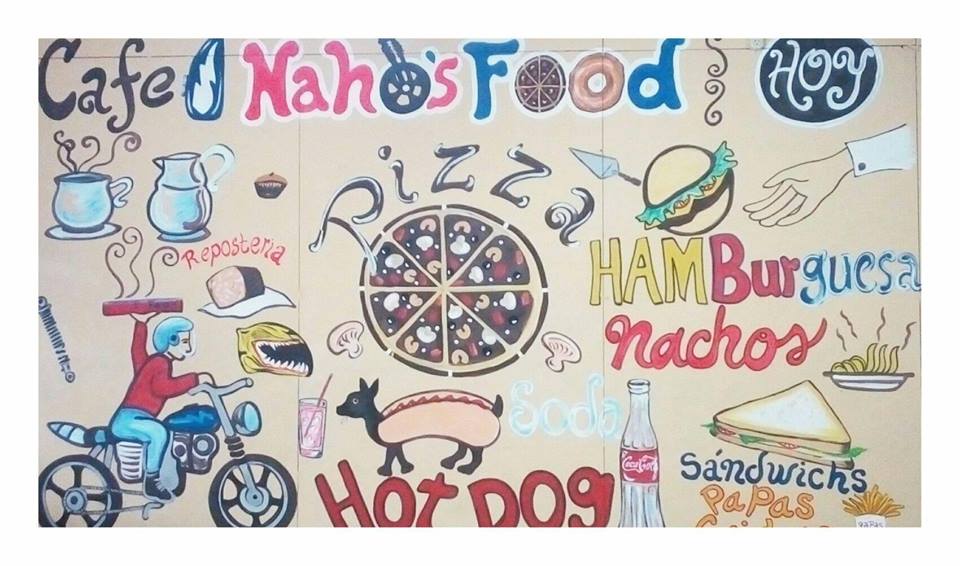 Cafe Naho's Food
HOY
Pizza
Reposteria
HAMBurguesa
nachos
Soda
Coca-Cola
Sándwichs
PaPas
PaPas
HOt DOG